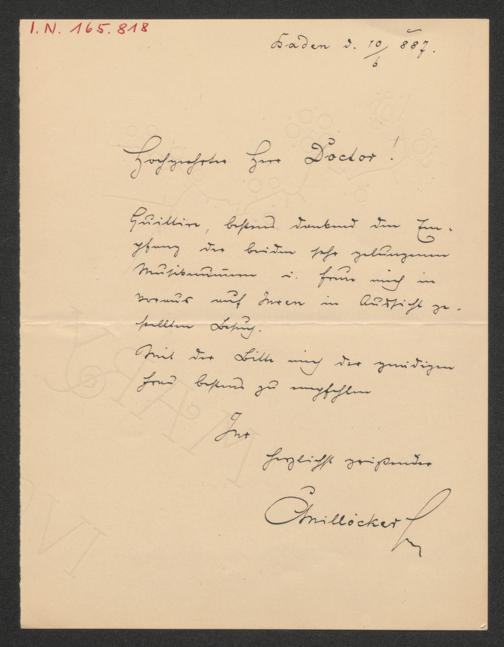 I.N. 165.818
Baden d. 10/6 887.
Hochgeehrter Herr Doctor!
Quittire, bestens dankend den Em-
pfang der beiden sehr gelungenen
Musiknummern u. freue mich im
voraus auf Ihren in Aussicht ge-
stellten Besuch.
Mit der Bitte mich der gnädigen
Frau bestens zu empfehlen
Ihr
herzlichst grüßender
CMillöcker